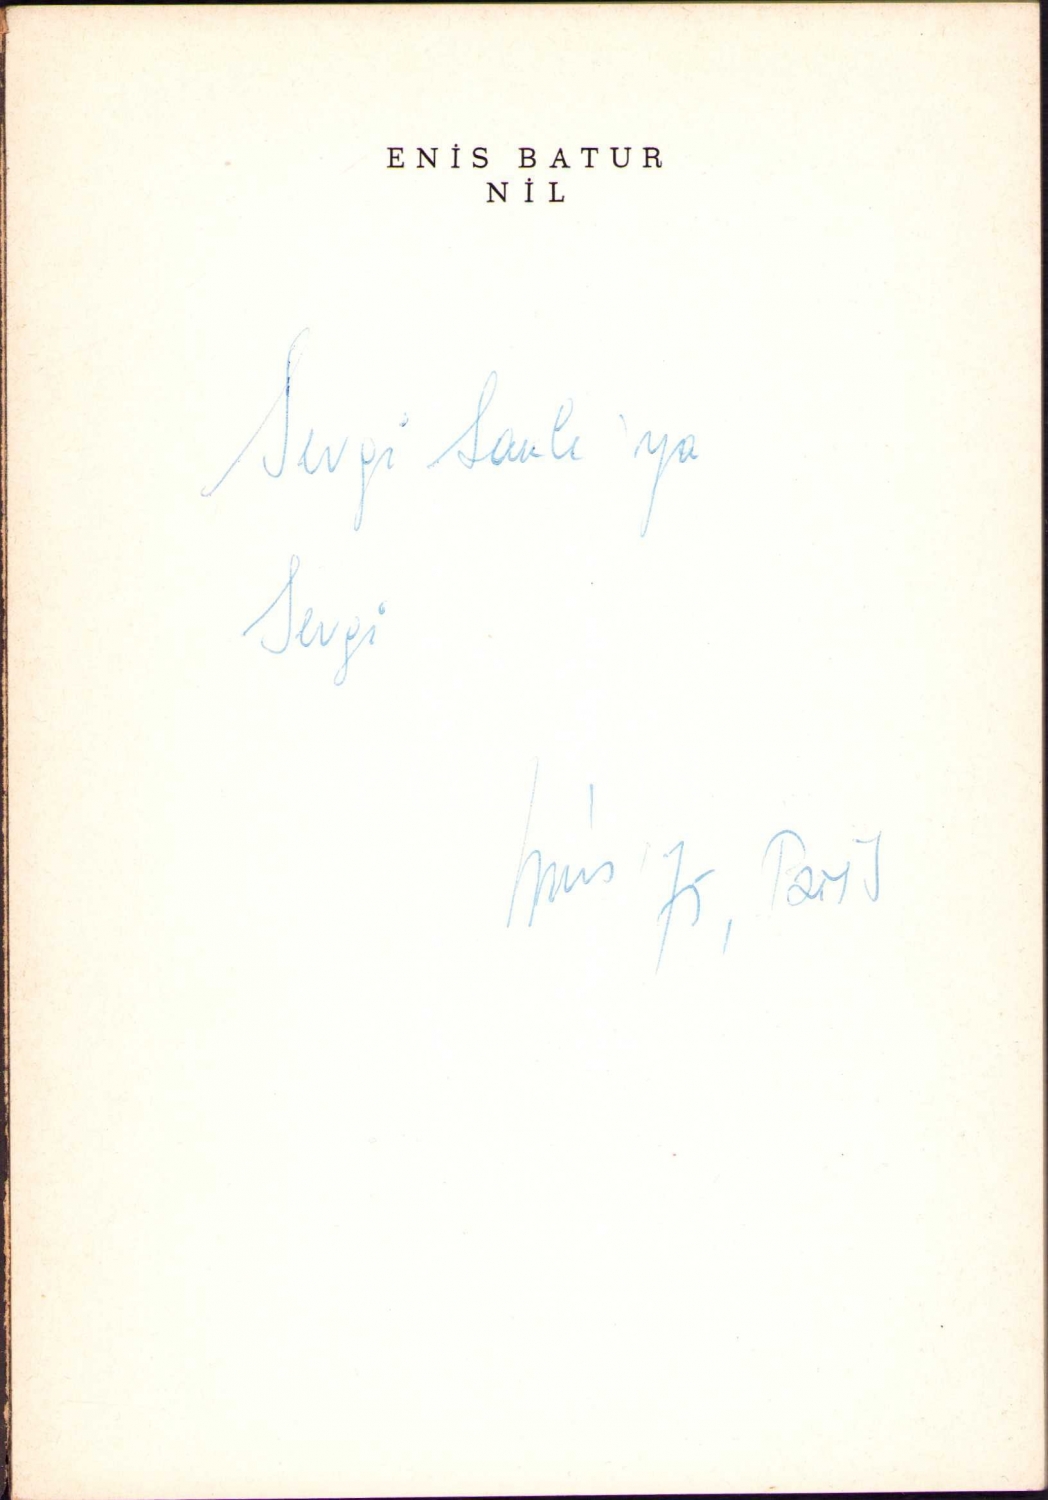 ENİS BATUR
NİL
Sevgi Sanlı'ya
Sevgi
Enis 75, Paris